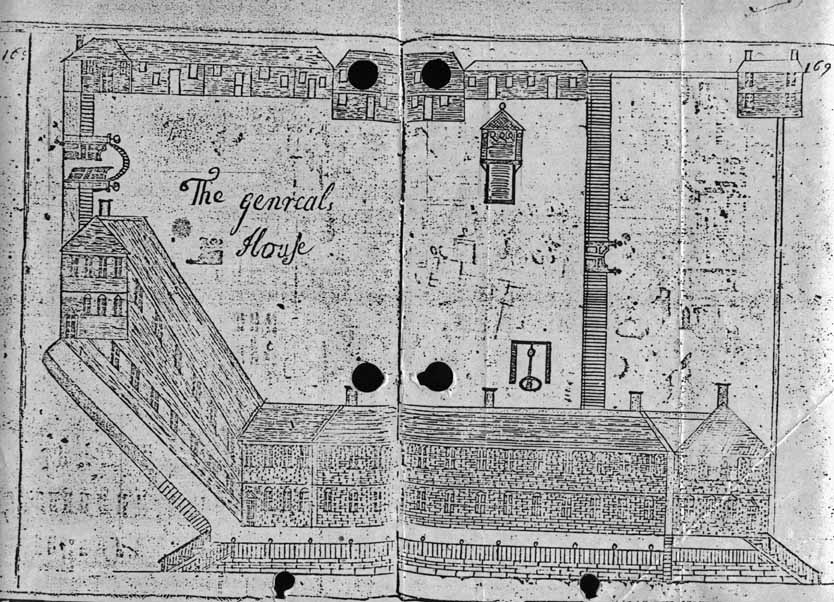 169
The genrcals
House